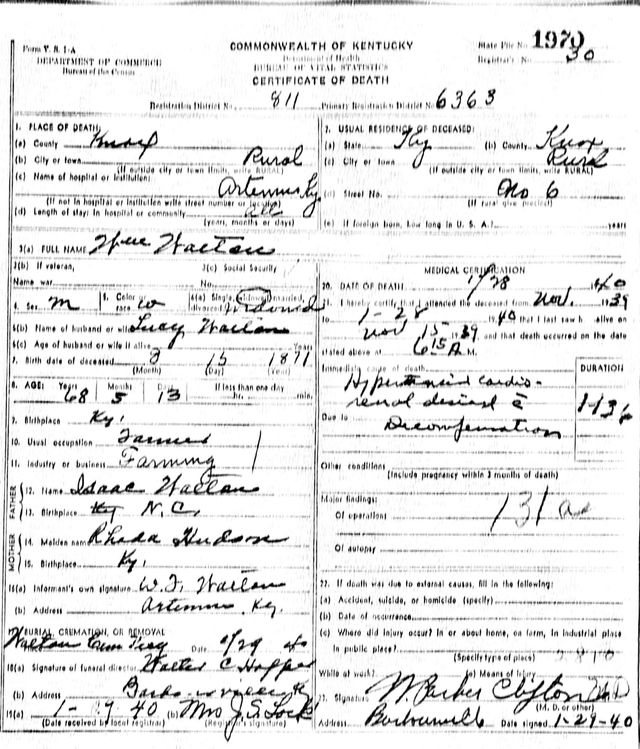 Form V. S. 1-A
DEPARTMENT OF COMMERCE
Bureau of the Census
COMMONWEALTH OF KENTUCKY
Department of Health
BUREAU OF VITAL STATISTICS
CERTIFICATE OF DEATH
State File No. 1970
Registrar's No. 30
Registration District No. 811 Primary Registration District No. 6363
1. PLACE OF DEATH
(a) County Knox
(b) City or town Rural
(If outside city or town limits, write RURAL)
(c) Name of hospital or institution:
Artemus Ky
(If not in hospital or institution write street number or location)
(d) Length of stay: In hospital or community
(years, months or days)
2. USUAL RESIDENCE OF DECEASED:
(a) State Ky (b) County Knox
(c) City or town Rural
(If outside city or town limits, write RURAL)
(d) Street No. No 6
(If rural give precinct)
(e) If foreign born, how long in U. S. A.? years
3(a) FULL NAME Wm Walton
3(b) If veteran, 3(c) Social Security
Name war No.
4. Sex M 5. Color or race W 6(a) Single, widowed, married, divorced Widowed
6(b) Name of husband or wife Lucy Walton
6(c) Age of husband or wife if alive
7. Birth date of deceased 8 15 1871
(Month) (Day) (Year)
8. AGE: Years Months Days If less than one day
68 5 13 hr. min.
9. Birthplace Ky.
10. Usual occupation Farmer
11. Industry or business Farming
FATHER
12. Name Isaac Walton
13. Birthplace Ky N.C.
MOTHER
14. Maiden name Rhoda Hudson
15. Birthplace Ky.
16(a) Informant's own signature W. F. Walton
(b) Address Artemus, Ky.
17 BURIAL, CREMATION, OR REMOVAL
Walton Cemetery Date 1/29 40
18(a) Signature of funeral director Walter C Hopper
(b) Address Barbourville Ky
19(a) 1- 40 (b) Mrs J. S. Lock
(Date received by local registrar) (Registrar's signature)
MEDICAL CERTIFICATION
20. DATE OF DEATH 1/28 40
21. I hereby certify that I attended the deceased from Nov. 1939
to 1-28 1940 that I last saw h alive on
Nov 15 1939 and that death occurred on the date
stated above at 6 15 A M.
Immediate cause of death DURATION
Hypertensive cardio-
renal disease c
Due to Decompensation
Other conditions
(Include pregnancy within 3 months of death)
Major findings:
Of operations 131 a
Of autopsy
22. If death was due to external causes, fill in the following:
(a) Accident, suicide, or homicide (specify)
(b) Date of occurrence
(c) Where did injury occur? In or about home, on farm, in industrial place
in public place?
(Specify type of place)
While at work? (e) Means of injury
23. Signature W. Parker Clifton M.D.
(M. D. or other)
Address Barbourville Date signed 1-29-40